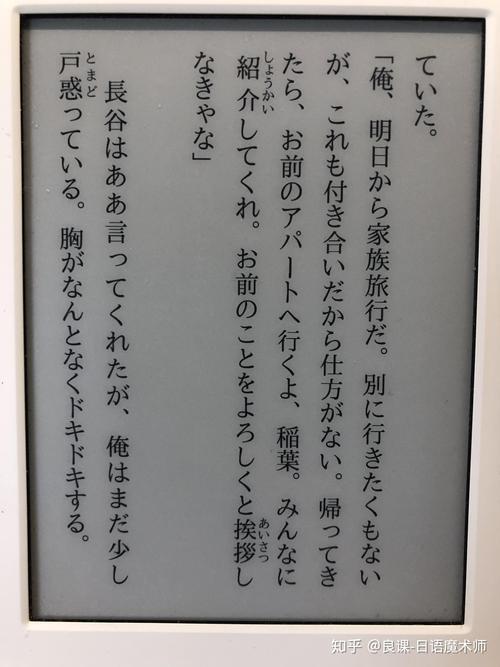 ていた。
「俺、明日から家族旅行だ。別に行きたくもない
が、これも付き合いだから仕方がない。帰ってき
たら、お前のアパートへ行くよ、稲葉。みんなに
紹介してくれ。お前のことをよろしくと挨拶し
なきゃな」
長谷はああ言ってくれたが、俺はまだ少し
戸惑っている。胸がなんとなくドキドキする。
しょうかい
あいさつ
とまど
知乎 @良课-日语魔术师